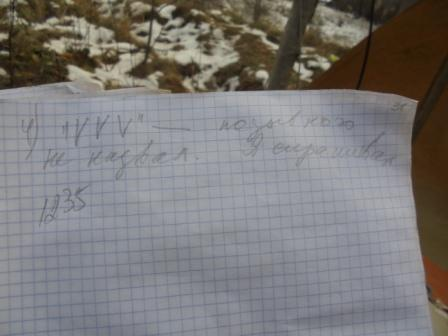 4) "VVV" — позывного
не назвал. Я спрашивал
1235